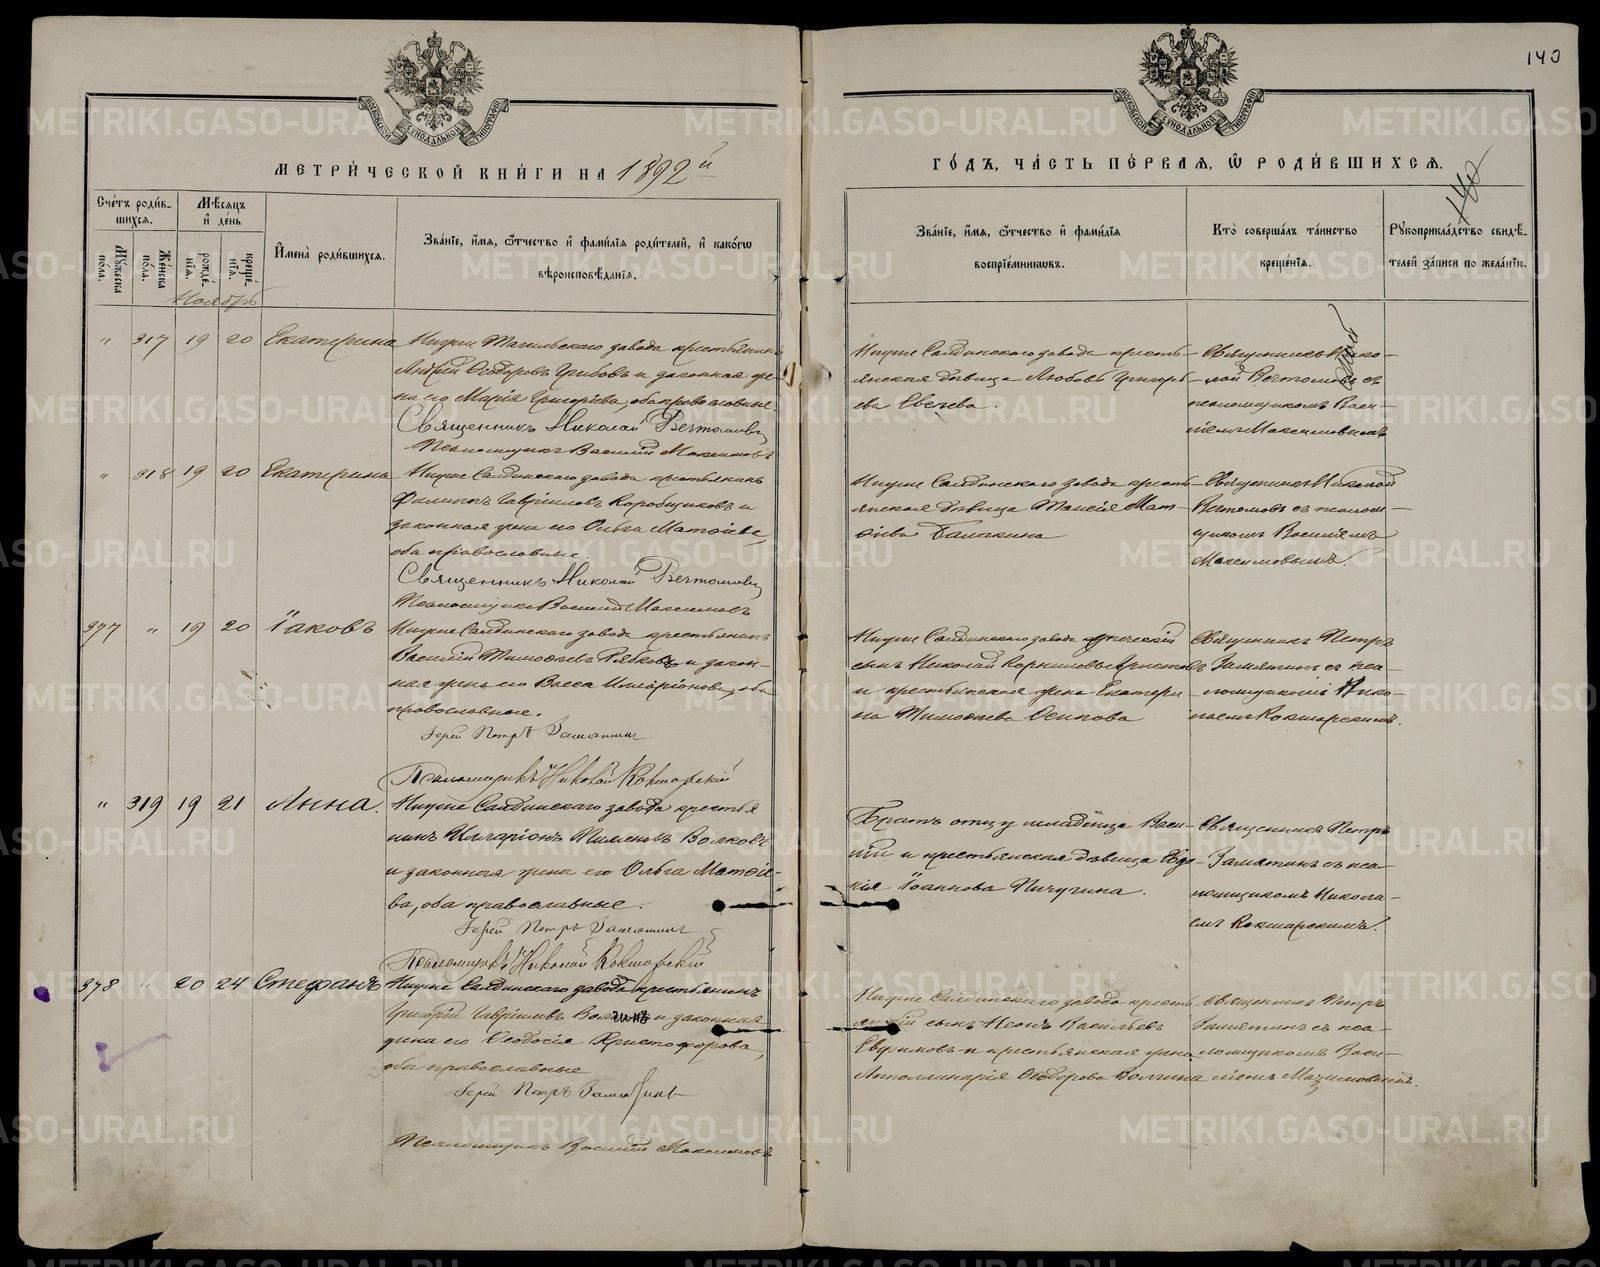 140
МОСКОВСКОЙ СѴНОДАЛЬНОЙ ТИПОГРАФІИ
МОСКОВСКОЙ СѴНОДАЛЬНОЙ ТИПОГРАФІИ
МЕТРИ́ЧЕСКОЙ КНИ́ГИ НА 1892й
ГО́ДЪ, ЧА́СТЬ ПЕ́РВАЯ, Ѡ РОДИ́ВШИХСЯ.
140
Сче́тъ роди́в-
шихся.
Мꙋжеска по́ла.
Же́нска по́ла.
Мѣ́сяцъ
и де́нь
рожде́-
нія.
креще́-
нія.
Имена̀ роди́вшихся.
Зва́ніе, и́мя, ѻ́тчество и фами́лія роди́телей, и како́гѡ
вѣроисповѣ́данія.
Зва́ніе, и́мя, ѻ́тчество и фами́лія
воспріе́мникѡвъ.
Кто̀ соверша́лъ та́инство
креще́нія.
Рꙋкоприкла́дство свидѣ́-
телей за́писи по жела́нію.
Ноябрь
" 317 19 20 Екатерина
Нижне Тагильскаго завода крестьянинъ
Андрей Ѳеодоровъ Грибовъ и законная же-
на его Марія Григорьева, оба православные.
Священникъ Николай Вечтомовъ
Псаломщикъ Василій Максимовъ
Нижне Салдинскаго завода кресть-
янская дѣвица Любовь Григорь-
ева
Священникъ Нико-
лай Вечтомовъ съ
псаломщикомъ Васи-
ліемъ Максимовымъ
" 318 19 20 Екатерина
Нижне Салдинскаго завода крестьянинъ
Филиппъ Гавріиловъ Коробщиковъ и
законная жена его Ольга Матѳіева,
оба православные.
Священникъ Николай Вечтомовъ
Псаломщикъ Василій Максимовъ
Нижне Салдинскаго завода кресть-
янская дѣвица Таисія Мат-
ѳіева Балакина
Священникъ Николай
Вечтомовъ съ псалом-
щикомъ Василіемъ
Максимовымъ.
377 " 19 20 Іаковъ
Нижне Салдинскаго завода крестьянинъ
Василій Тимоѳеевъ Рябковъ и закон-
ная жена его Васса Иларіонова, оба
православные.
Іерей Петръ Замятинъ
Псаломщикъ Николай Кокшарскій
Нижне Салдинскаго завода
сынъ Николай Корниловъ
и крестьянская жена Екатери-
на Тимоѳеева Осипова
Священникъ Петръ
Замятинъ съ пса-
ломщикомъ Нико-
лаемъ Кокшарскимъ.
" 319 19 21 Анна.
Нижне Салдинскаго завода крестья-
нинъ Иларіонъ Пименовъ Волковъ
и законная жена его Ольга Матѳіе-
ва, оба православные.
Іерей Петръ Замятинъ
Псаломщикъ Николай Кокшарскій
Братъ отцу младенца Васи-
лій и крестьянская дѣвица Евдо-
кія Іоаннова Пичугина.
Священникъ Петръ
Замятинъ съ пса-
ломщикомъ Никола-
емъ Кокшарскимъ.
378 " 20 24 Стефанъ
Нижне Салдинскаго завода крестьянинъ
Григорій Гавріиловъ Волгинъ и законная
жена его Ѳеодосія Христофорова,
оба православные
Іерей Петръ Замятинъ
Псаломщикъ Василій Максимовъ
Нижне Салдинскаго завода кресть-
янскій сынъ Иванъ Васильевъ
Евфимовъ и крестьянская жена
Апполинарія Ѳеодорова Волгина
Священникъ Петръ
Замятинъ съ пса-
ломщикомъ Васи-
ліемъ Максимовымъ.
METRIKI.GASO-URAL.RU